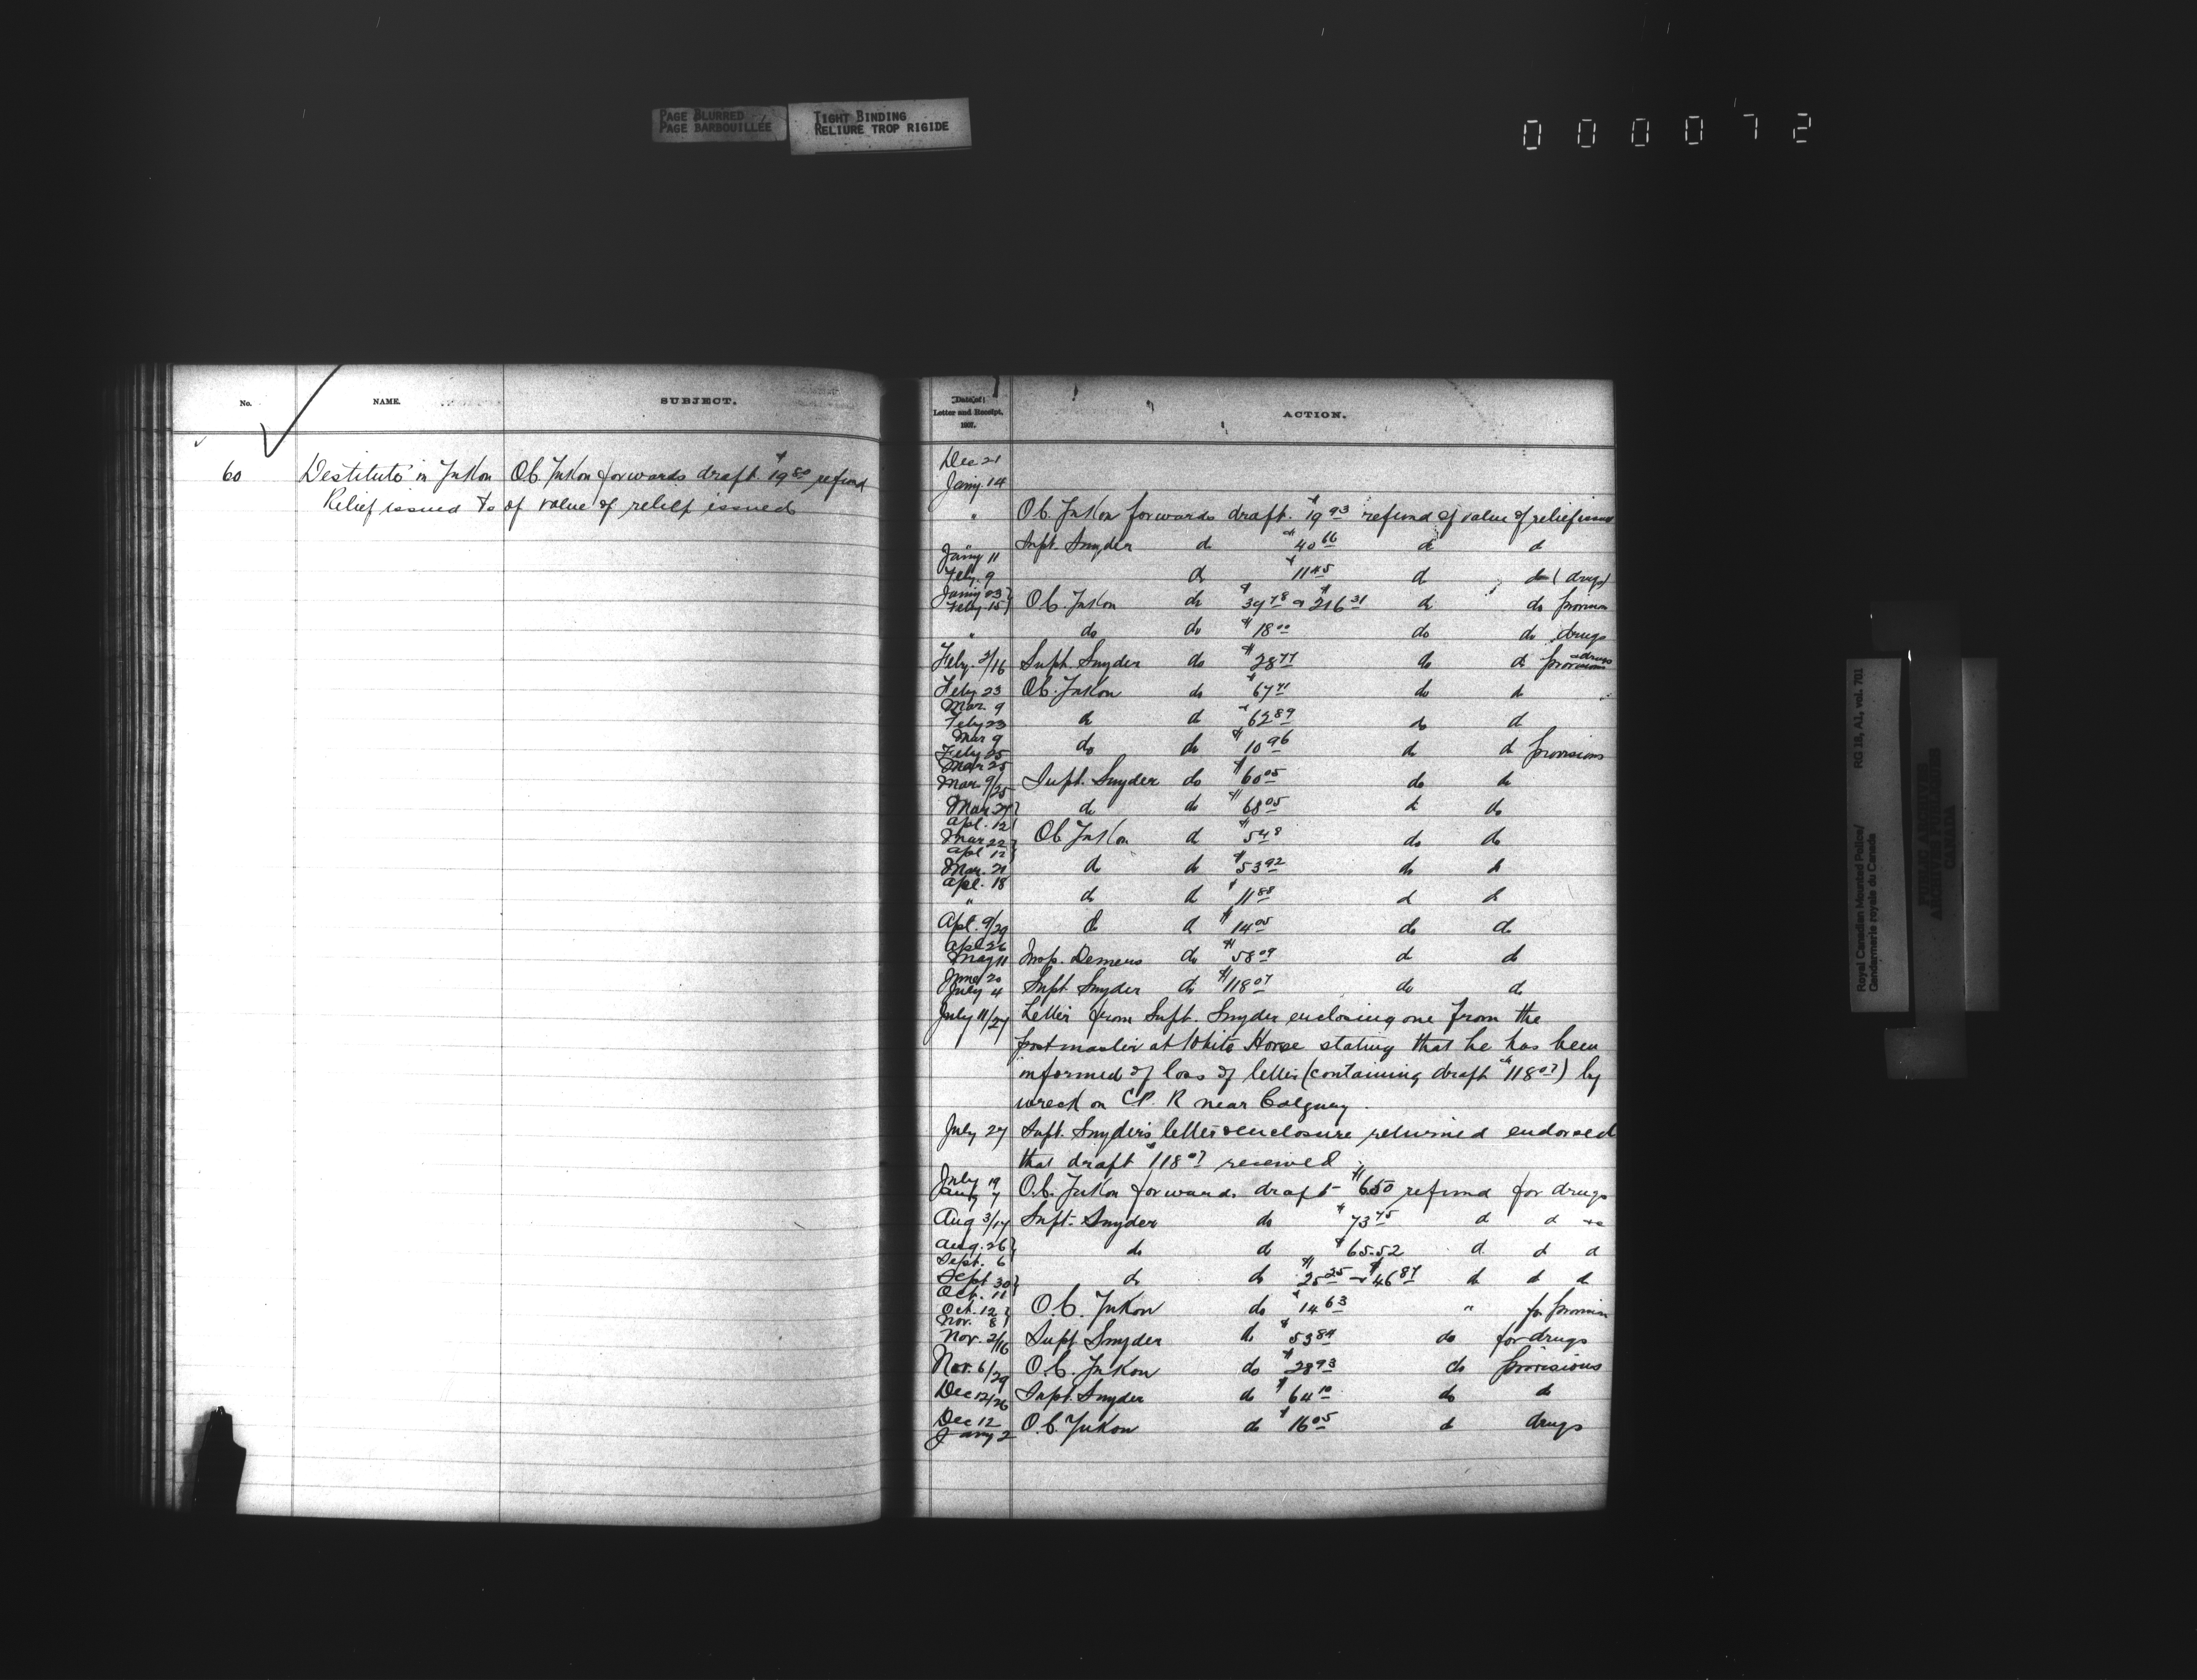 PAGE BLURRED
PAGE BARBOUILLÉE
TIGHT BINDING
RELIURE TROP RIGIDE
0 0 0 0 7 2
No. NAME. SUBJECT.
60 Destitute in Yukon O.C. Yukon forwards draft $19.80 refund
Relief issued to of value of relief issued
Date of
Letter and Receipt,
1907.
ACTION.
Dec 21
Jany. 14
" O.C. Yukon forwards draft $19.93 refund of value of relief issued
" Supt. Snyder do $40.66 do do
Jany 11
Feby. 9 do $11.45 do do (drugs)
Jany 23
Feby 15 O.C. Yukon do do do
" do do $18.00 do do drugs
Feby. 2/16 Supt. Snyder do $28.77 do do provisions & drugs
Feby 23
Mar. 9 O.C. Yukon do do do
Feby 23
Mar 9 do do $62.89 do do
Feby 25
Mar 25 do do $10.96 do do provisions
Mar. 9/25 Supt. Snyder do $60.05 do do
Mar 27
Apl. 12 do do $68.05 do do
Mar 22
Apl 12 O.C. Yukon do do do
Mar. 21
Apl. 18 do do $53.92 do do
" do do $11.88 do do
Apl. 9/29 do do $14.05 do do
Apl 26
May 11 Insp. Demers do $58.09 do do
June 20
July 4 Supt Snyder do $118.07 do do
July 11/27 Letter from Supt. Snyder enclosing one from the
postmaster at White Horse stating that he has been
informed of loss of letter (containing draft $118.07) by
wreck on C.P.R near Calgary.
July 27 Supt. Snyder's letter & enclosure returned endorsed
that draft $118.07 received
July 19
Aug 7 O.C. Yukon forwards draft $6.50 refund for drugs
Aug 3/17 Supt. Snyder do $73.75 do do
Aug. 26
Sept. 6 do do $65.52 do do do
Sept 30
Oct. 11 do do $25.25 & $46.87 do do do
Oct. 12
Nov. 8 O.C. Yukon do $14.63 " for provisions
Nov. 2/16 Supt Snyder do $53.84 do for drugs
Nov. 6/29 O.C. Yukon do $28.93 do provisions
Dec 12/26 Supt. Snyder do $64.10 do do
Dec 12
Jany 2 O.C. Yukon do $16.05 do drugs
Royal Canadian Mounted Police/ RG 18, A1, vol. 701
Gendarmerie royale du Canada
PUBLIC ARCHIVES
ARCHIVES PUBLIQUES
CANADA